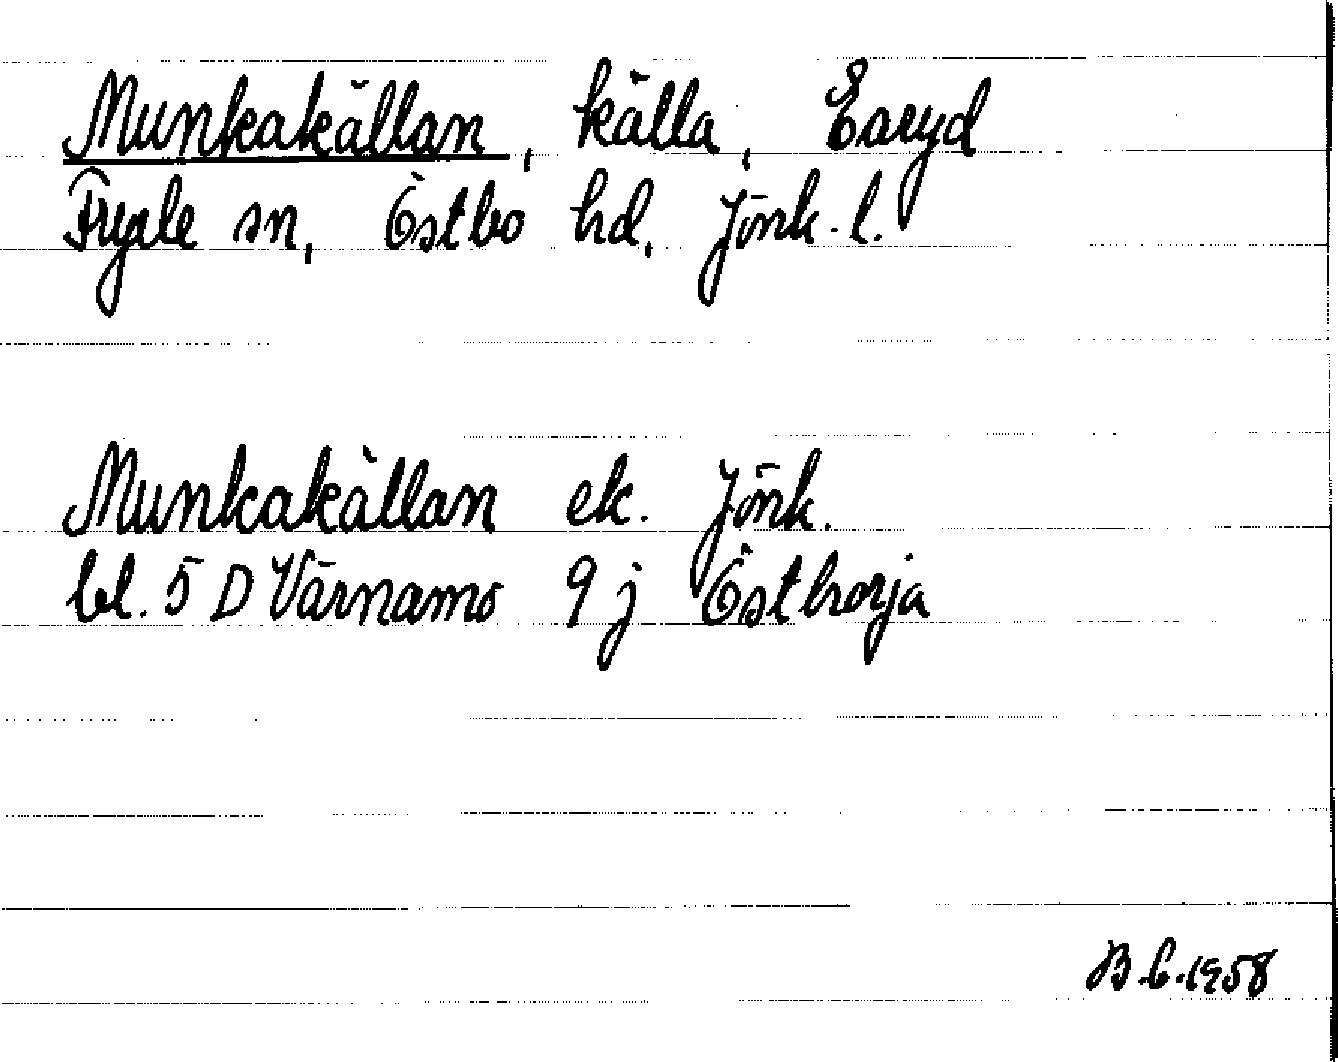 Munkakällan, källa, Esaryd
Fryele sn, Östbo hd, Jönk. l.
Munkakällan ek. Jönk.
bl. 5 D Värnamo 9 j Östhorja
B.C. 1958